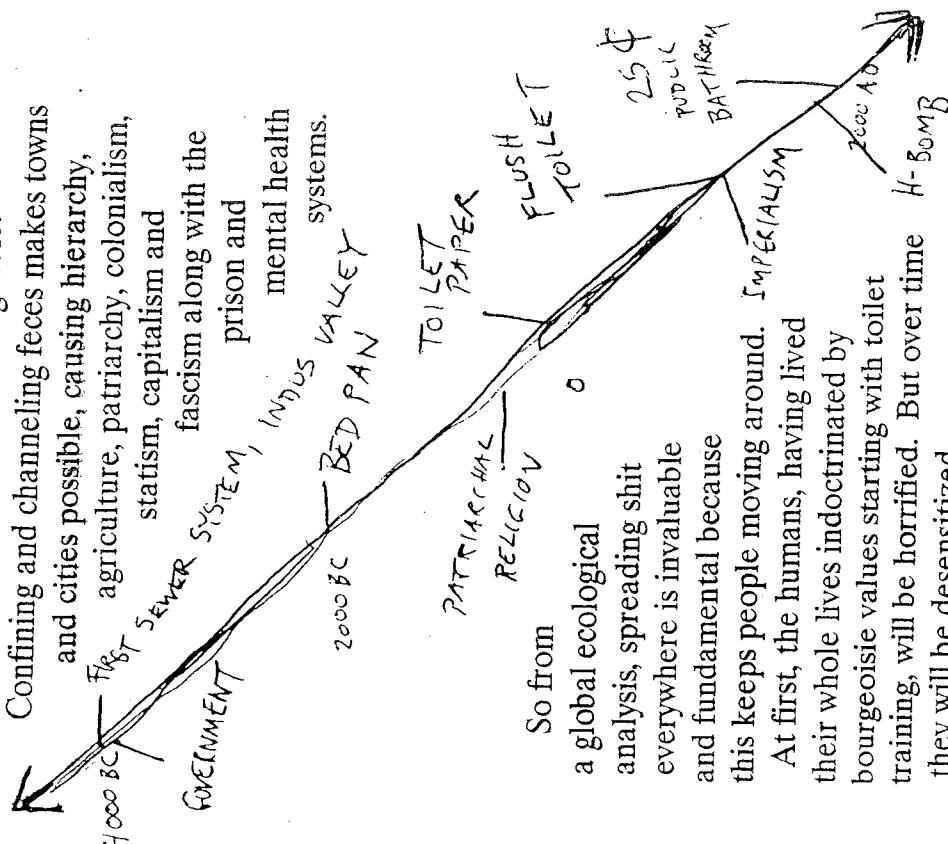 Confining and channeling feces makes towns
and cities possible, causing hierarchy,
agriculture, patriarchy, colonialism,
statism, capitalism and
fascism along with the
prison and
mental health
systems.
4000 BC
FIRST SEWER SYSTEM, INDUS VALLEY
GOVERNMENT
2000 BC
BED PAN
PATRIARCHAL
RELIGION
TOILET
PAPER
0
FLUSH
TOILET
IMPERIALISM
25 ¢
PUBLIC
BATHROOM
2000 AD
H-BOMB
So from
a global ecological
analysis, spreading shit
everywhere is invaluable
and fundamental because
this keeps people moving around.
At first, the humans, having lived
their whole lives indoctrinated by
bourgeoisie values starting with toilet
training, will be horrified. But over time
they will be desensitized